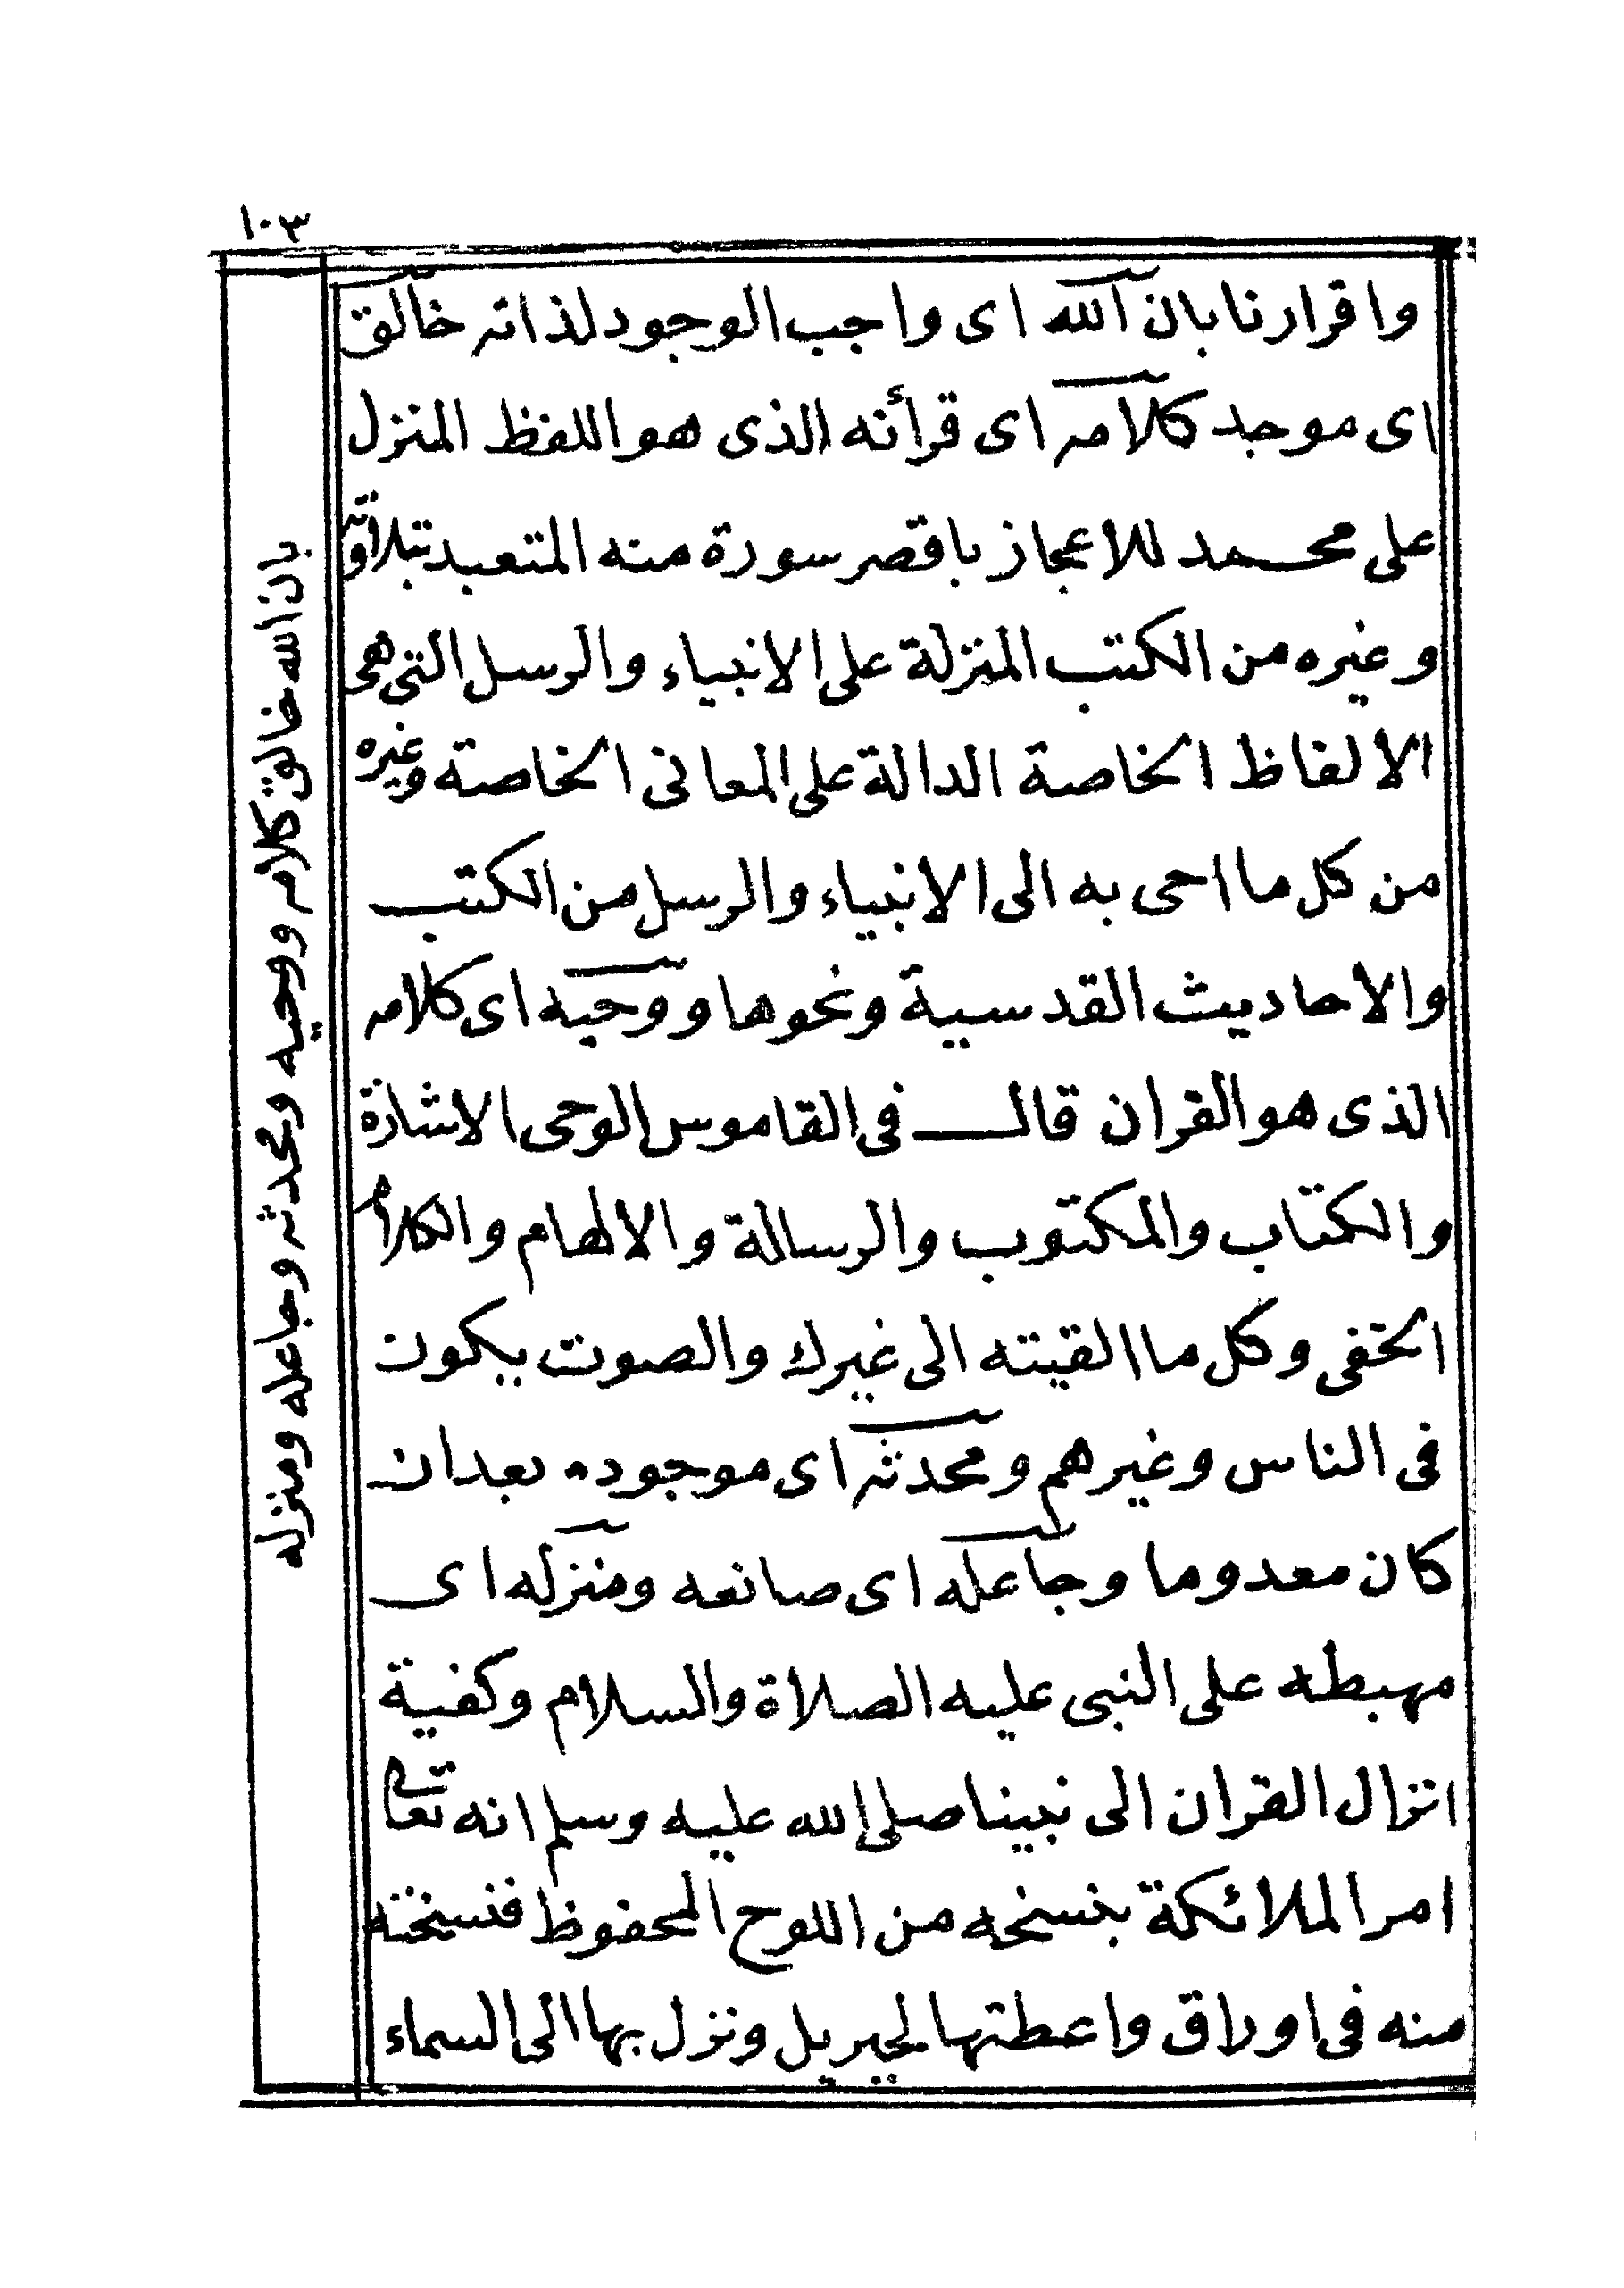 ١٠٣
واقرارنا بان الله اى واجب الوجود لذاته خالق
اى موجد كلامه اى قرأنه الذى هو اللفظ المنزل
على محمد للاعجاز باقصر سورة منه المتعبد بتلاوته
وغيره من الكتب المنزلة على الانبياء والرسل التى هى
الالفاظ الخاصة الدالة على المعانى الخاصة وغيره
من كل ما احى به الى الانبياء والرسل من الكتب
والاحاديث القدسية ونحوها ووحيه اى كلامه
الذى هو القران قال فى القاموس الوحى الاشارة
والكتاب والمكتوب والرسالة والالهام والكلام
الخفى وكل ما القيته الى غيرك والصوت يكون
فى الناس وغيرهم ومحدثه اى موجوده بعد ان
كان معدوما وجاعله اى صانعه ومنزله اى
مهبطه على النبى عليه الصلاة والسلام وكفية
انزال القران الى نبينا صلى الله عليه وسلم انه تعالى
امر الملائكة بنسخه من اللوح المحفوظ فنسخته
منه فى اوراق واعطتها لجبريل ونزل بها الى السماء
بان الله خالق كلام ووحيه ومحدثه وجاعله ومنزله